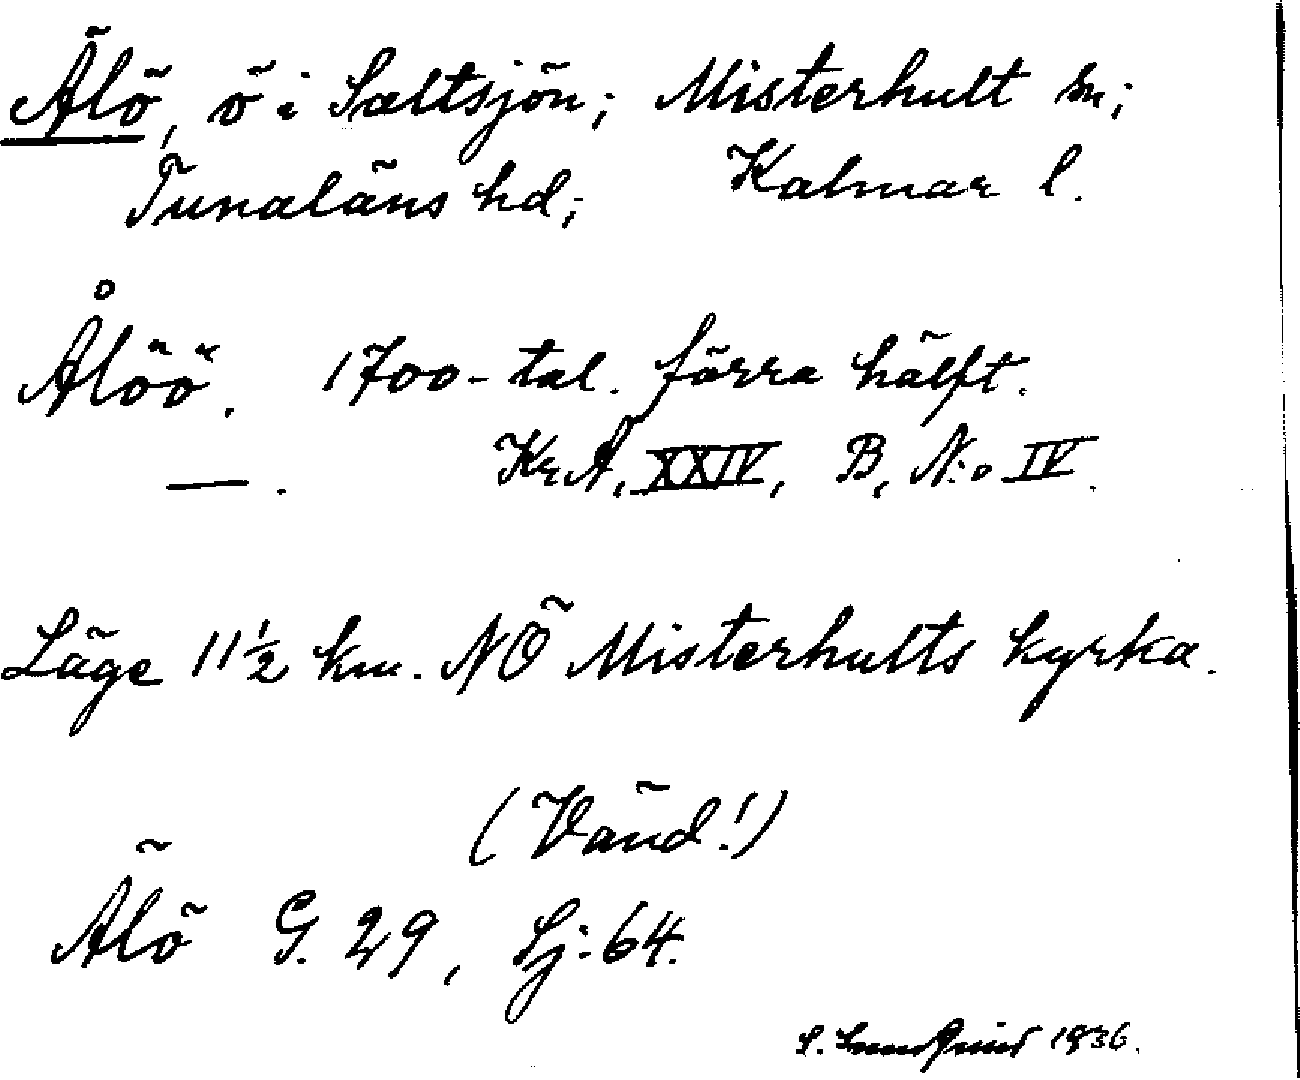 Älö, ö i Saltsjön; Misterhult sn;
Tunaläns hd; Kalmar l.
Ålöö. 1700-tal. förra hälft.
—. Kr.A, XXIV, B, N:o IV.
Läge 11½ km. NÖ Misterhults kyrka.
(Vänd!)
Älö G. 29, Lj:64.
S. 1936.